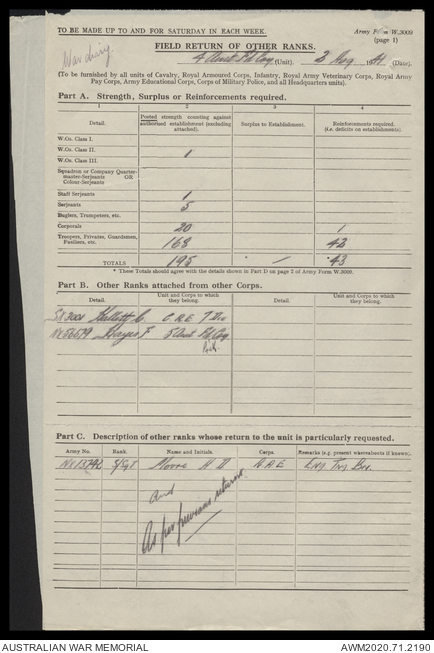 TO BE MADE UP TO AND FOR SATURDAY IN EACH WEEK.
Army Form W.3009
(page 1)
War diary
FIELD RETURN OF OTHER RANKS.
4 Aust Fd Coy (Unit). 2 Aug 1941 (Date).
(To be furnished by all units of Cavalry, Royal Armoured Corps, Infantry, Royal Army Veterinary Corps, Royal Army
Pay Corps, Army Educational Corps, Corps of Military Police, and all Headquarters units).
Part A. Strength, Surplus or Reinforcements required.
1 2 3 4
Detail. Posted strength counting against authorised establishment (excluding attached). Surplus to Establishment. Reinforcements required. (i.e. deficits on establishments).
W.Os. Class I.
W.Os. Class II. 1
W.Os. Class III.
Squadron or Company Quarter-
master-Serjeants OR
Colour-Serjeants
Staff Serjeants 1
Serjeants 5
Buglers, Trumpeters, etc.
Corporals 20 1
Troopers, Privates, Guardsmen,
Fusiliers, etc. 168 42
TOTALS 195 / 43
* These Totals should agree with the details shown in Part D on page 2 of Army Form W.3009.
Part B. Other Ranks attached from other Corps.
Detail. Unit and Corps to which they belong. Detail. Unit and Corps to which they belong.
C. C.R.E 7 Div
Hayes F. 5 Aust Fd Coy
Part C. Description of other ranks whose return to the unit is particularly requested.
Army No. Rank. Name and Initials. Corps. Remarks (e.g. present whereabouts if known).
NX13742 S/Sgt Moore H D R.A.E Eng Trg Bn.
and
As per previous returns
AUSTRALIAN WAR MEMORIAL
AWM2020.71.2190